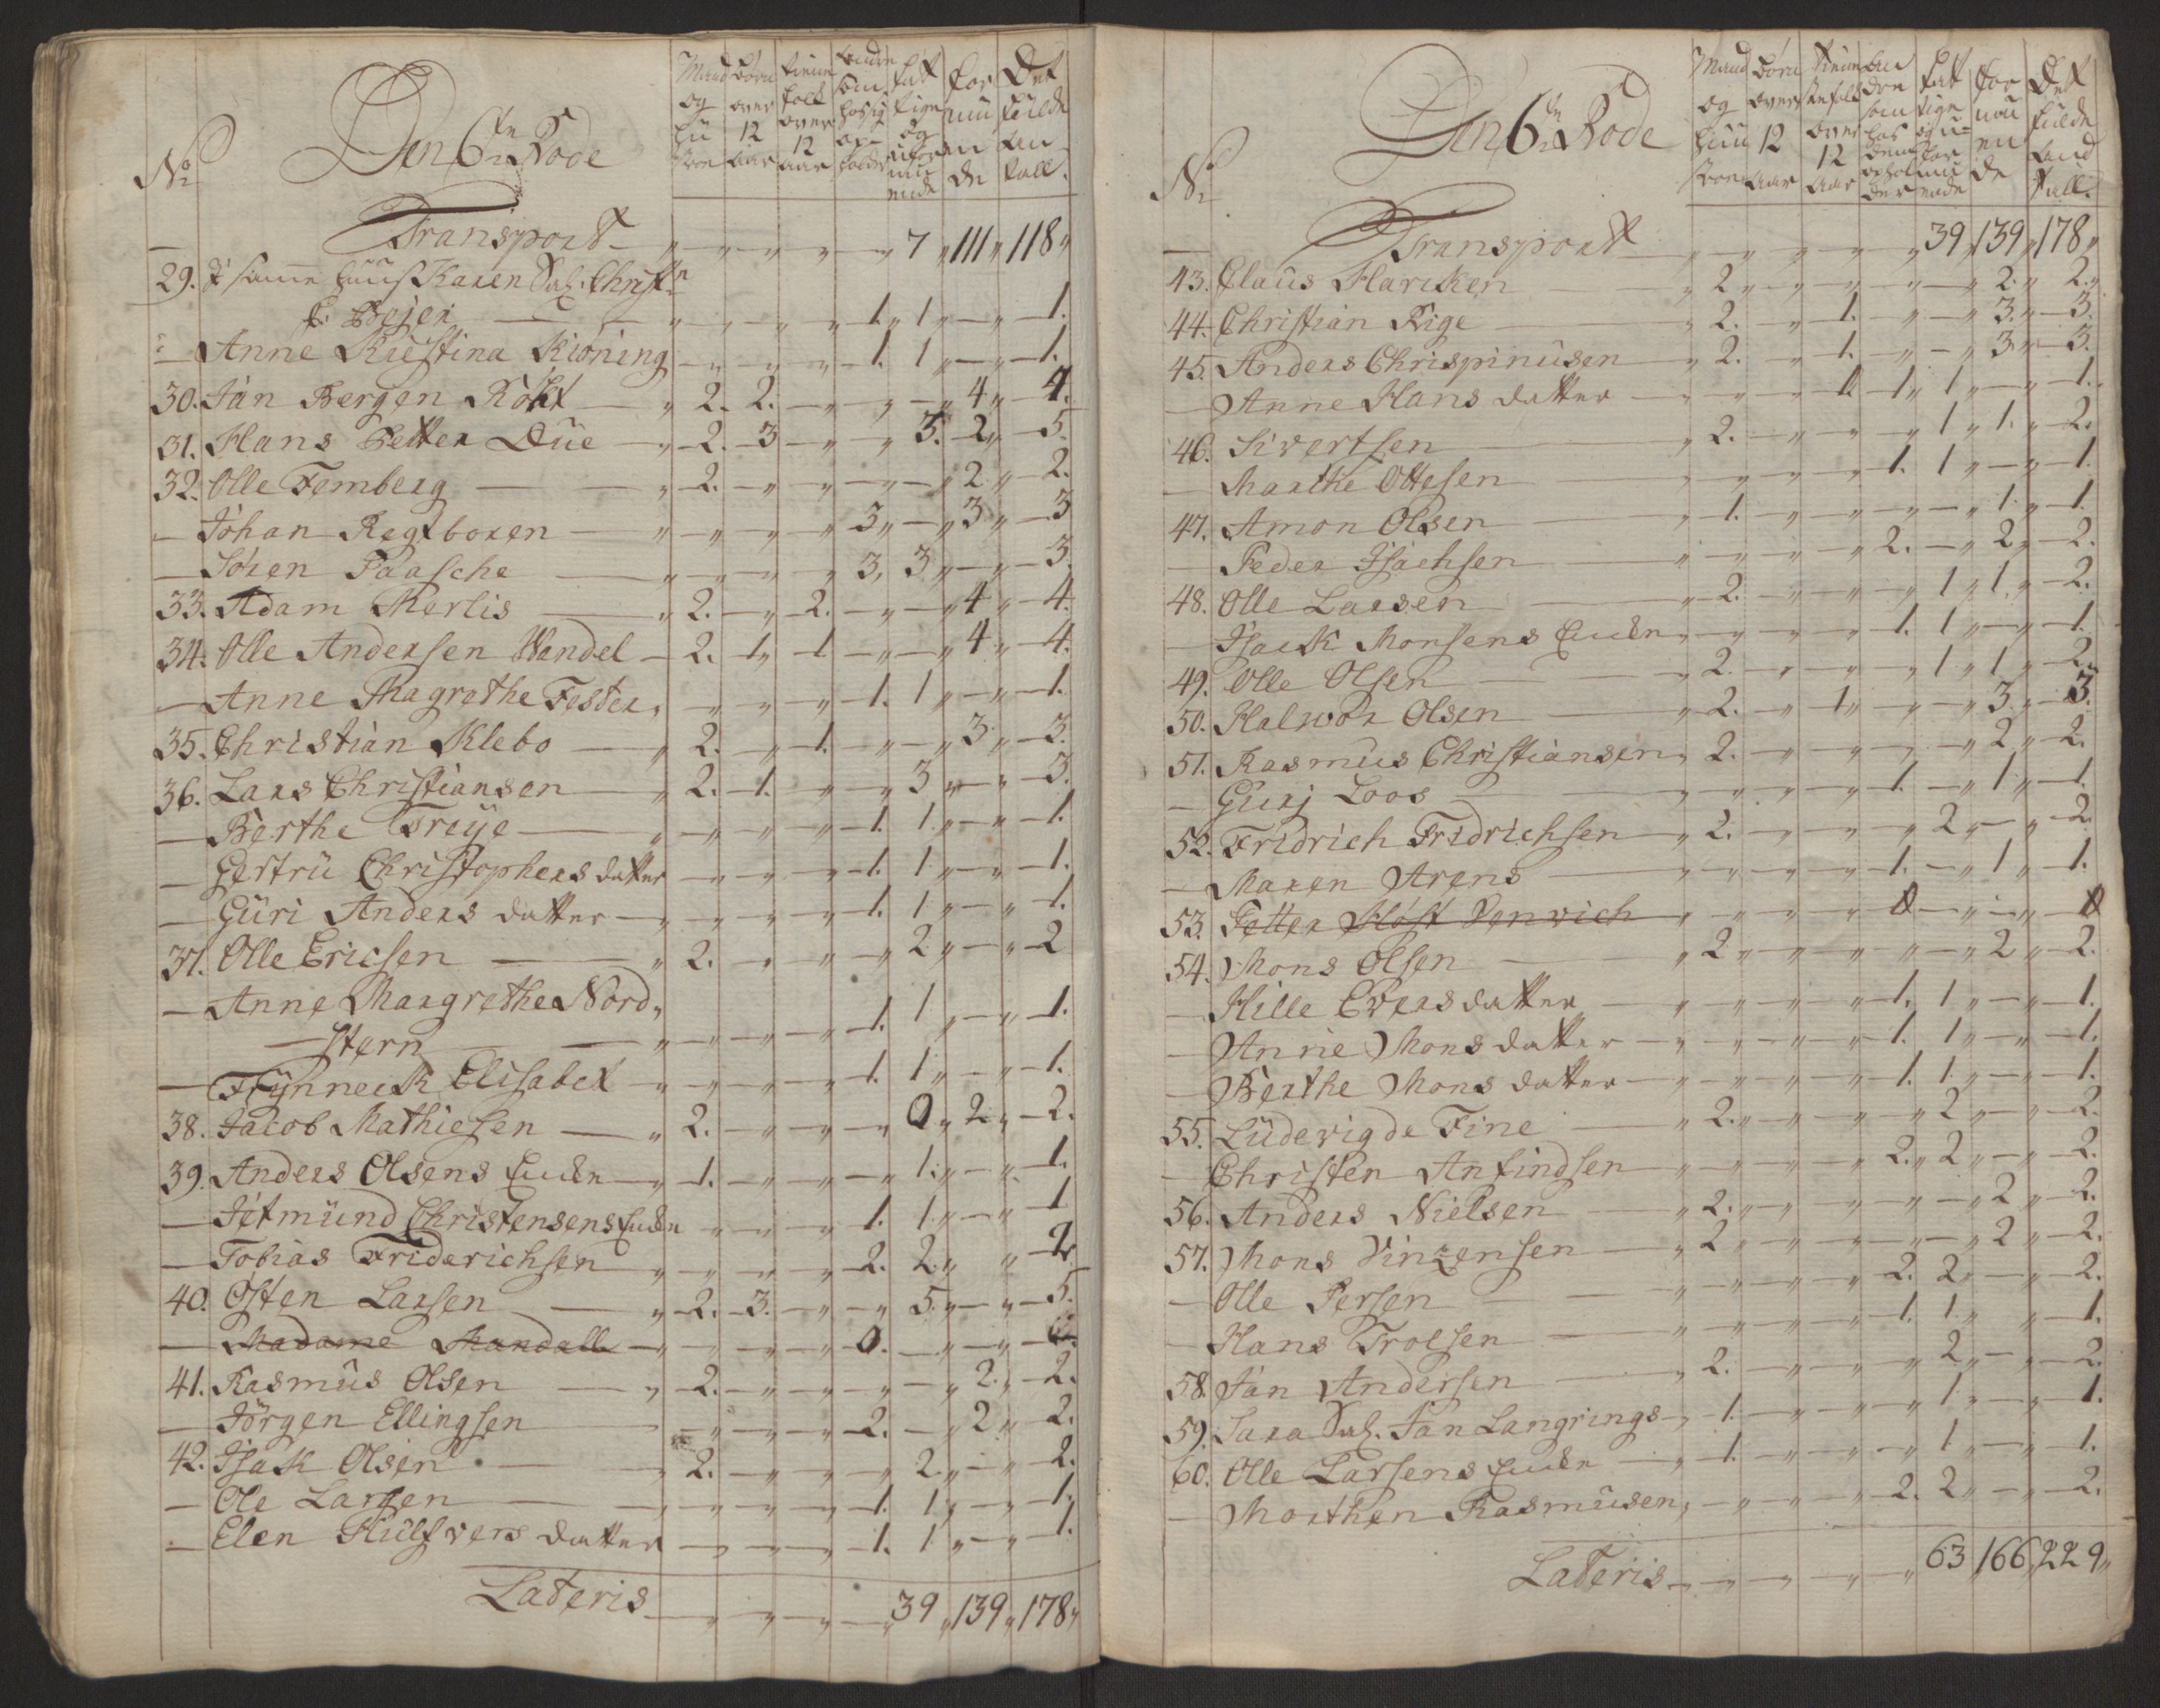 No
Den 6te Rode
Mand og Hu stroe
Børn over 12 Aar
tienne folk over 12 aar
andre som
fat tige og ufor mu ende
for mu en de
Det fulde An tall.
Transport " — " — " — " — " — 7 " 111 " 118 "
29. I samme huus Karen Sal. Christn
Bejer — " — " — " — " 1. " 1 " — " — 1.
— Anne Kiestina Kiöning — " — " — " — 1. 1 " — " — 1.
30. Jan Bergen Röst — " 2. 2. — " — " — 4 " — 4.
31. Hans Petter Due — " 2. 3 — " — " 3. 2 " — 5.
32. Olle Femberg — " 2. — " — " — " 2 " — 2.
— Johan Regtboren — " — " — " — " 3 " — " 3 " — 3
— Sören Paasche — " — " — " — " 3, 3 " — " — 3.
33. Adam Merlis — " 2. — " 2. — " — 4 " — 4.
34. Olle Andersen Wandel — 2. 1 " 1 — " — " 4 " — 4.
— Anne Magrethe Fester, — " — " — " 1. 1 " — " — 1.
35. Christian Klebo — " 2. — " 1. — " — 3 " — 3.
36. Lars Christiansen — " 2. 1. — " — " 3 " — " — 3.
— Berthe Treije — " — " — " — " 1. 1. " — " — 1.
— Gertru Christophers datter — " — " — " 1. 1. " — " — 1.
— Güri Anders datter — " — " — " — " 1. 1 " — " — 1.
37. Olle Ericsen — " 2. " — " — " 2. " — " — 2
— Anne Margrethe Nord,
— stern — " — " — " — " 1. 1 " — " — 1.
— Trÿnneck Elisabet — " — " — " — " 1. 1 " — " — 1.
38. Jacob Mathiesen — " 2. — " — " — " 0 " 2 " — 2.
39. Anders Olsens Enke — " 1. — " — " — " 1. " — " — 1.
— Jetmünd Christensens Enke — " — " — " 1. 1. " — " — 1
— Tobias Friderichsen — " — " — " — " 2. 2. " — " — 2.
40. Östen Larsen — " 2. 3. — " — " 5. " — " — 5.
— Madame Mandall — " — " — " — " 0. — " — " —
41. Rasmüs Olsen — " 2. — " — " — " — 2. " — 2.
— Jörgen Ellingsen — " — " — " — 2. — " 2 " — 2.
42. Isak Olsen — " 2. — " — " — " 2. " — " — 2.
— Ole Larsen — " — " — " — " 1. 1 " — " — 1.
— Elen Hülfvers datter — " — " — " 1. 1 " — " — 1.
Lateris — " — " — " — " — 39 " 139 " 178 "
No
Den 6te Rode
Mand og Huu stroe
Børn over 12 Aar
tienne stefolk over 12 Aar
An dre som hos dem op hol der
fat tige og u= for mu ende
for mu en de
Det fulde And tall.
Transport — " — " — " — " — " 39 " 139 " 178 "
43. Claus Harcken — " 2 " — " — " — " — 2. " 2. "
44. Christian Rige — " 2. — " 1. — " — 3. " — 3.
45. Anders Chrispinüsen — " 2. — " 1. — " — 3. " — 3.
— Anne Hans datter — " — " — " 1 1 " 1 " — " — 1.
46. Sivertsen — " 2. — " — " — " 1 " 1. " — 2.
— Marthe Ottesen — " — " — " — " 1. 1 " — " — 1.
47. Amon Olsen — " 1. — " — " — " — " 1. " — 1.
— Peder Isachsen — " — " — " — " 2. — " 2 " — 2.
48. Olle Larsen — " 2. — " — " — " 1 " 1. " — 2.
— Isack Monsens Enke — " — " — " — " 1. 1 " — " — 1.
49. Olle Olsen — " 2. — " — " — " 1 " 1 " — 2.
50. Halvor Olsen — " 2. — " 1 " — " — 3. " — 3.
51. Rasmus Christiansen, 2. — " — " — " — " 2 " — 2.
— Gurj Loos — " — " — " — " 1. — " 1 " — 1.
52. Fridrich Fridrichsen — " 2. — " — " — " 2 " — " — 2.
— Maren Arens — " — " — " — " 1. — " 1 " — 1.
53. Petter Höst Venwich — " — " — " — " 0 — " — " — 0
54. Mons Olsen — " 2 " — " — " — " — 2 " — 2.
— Hille Evers datter — " — " — " — " 1. 1 " — " — 1.
— Anne Mons datter — " — " — " — " 1. 1 " — " — 1.
— Berthe Mons datter — " — " — " — " 1. 1. " — " — 1.
55. Lüdevig de Fine — " 2. " — " — " — " 2 " — " — 2.
— Christen Anfindsen — " — " — " — " 2. " 2 " — " — 2.
56. Anders Nielsen — " 2. " — " — " — " — 2 " — 2.
57. Mons Vinzensen — " 2 " — " — " — " — 2 " — 2.
— Olle Persen — " — " — " — " 2. 2 " — " — 2.
— Hans Troelsen — " — " — " — " 1. 1. " — " — 1.
58. Jan Andersen — " 2. — " — " — " 2 " — " — 2.
59. Sara Sal. Jan Langrings — " 1. — " — " — " 1 " — " — 1.
60. Olle Larsens Enke — " 1. — " — " — " 1 " — " 1.
— Morthen Rasmüsen, — " — " — " — 2. 2 " — " — 2.
Lateris — " — " — " — " — " 63 " 166 " 229 "